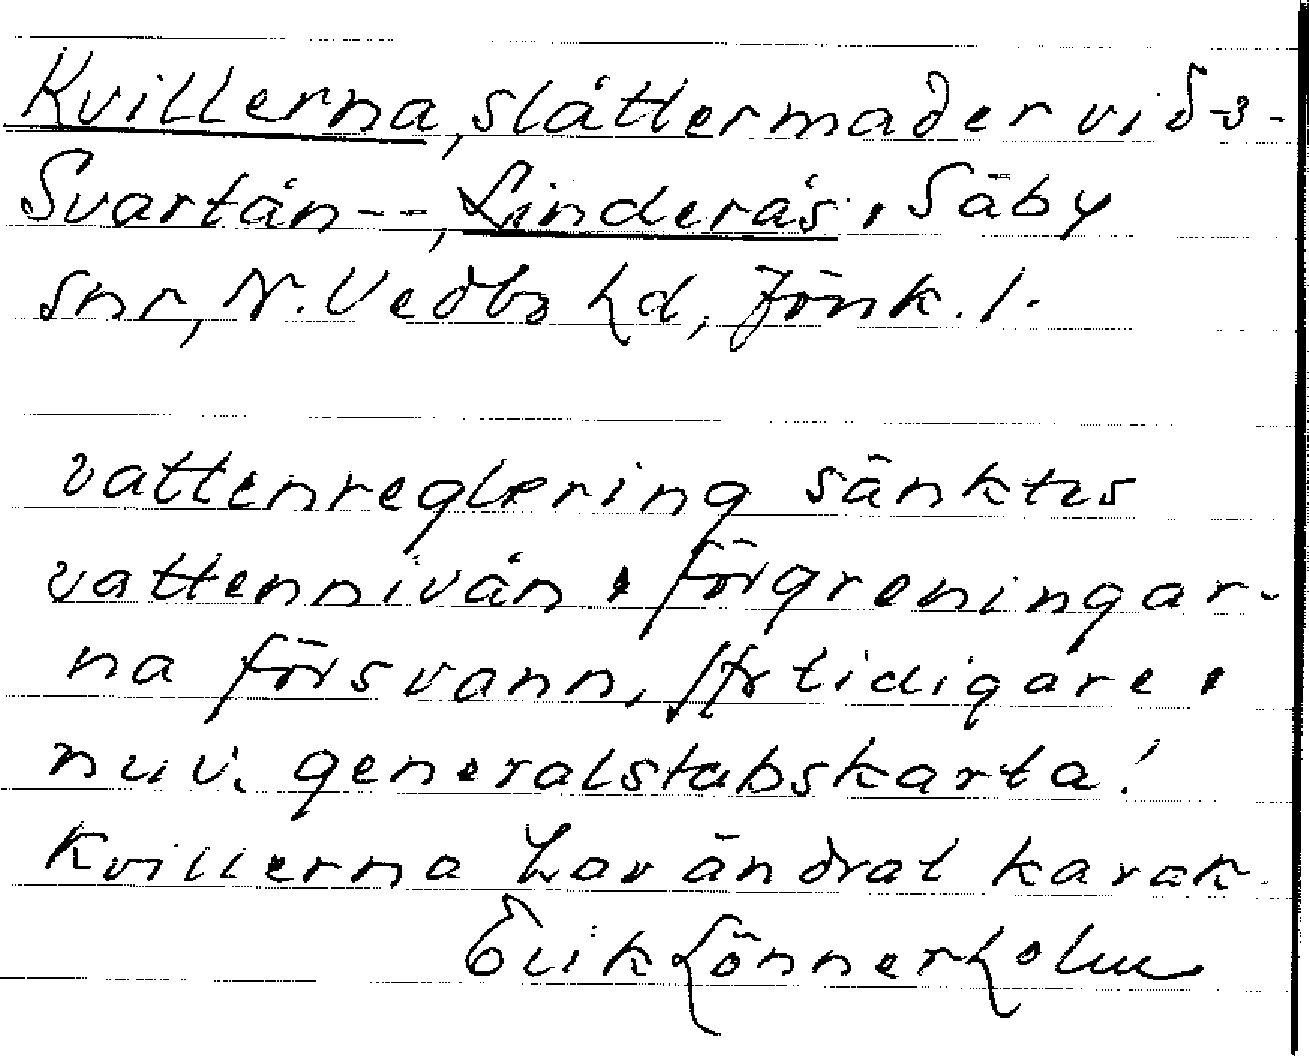 Kvillerna, slåttermader vid -3-
Svartån --, Linderås, Säby
snr, N. Vedbo hd, Jönk. l.
vattenreglering sänktes
vattennivån, förgreningar-
na försvann, jfr tidigare,
nuv. generalstabskarta!
Kvillerna har ändrat karak
Erik Lönnerholm